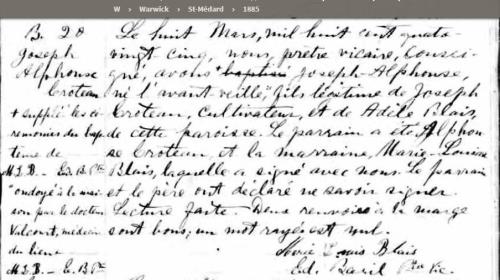 W > Warwick > St-Médard > 1885
B. 28
Joseph
Alphonse
Croteau
+ supplé les cé-
rémonies du bap-
tême de
M.L.B. - Ed. B. Ptre
"ondoyé à la mai-
son par le docteur
Valcourt, médecin
du lieu"
M.L.B. - E. B. Ptre
Le huit Mars, mil huit cent quatre-
vingt cinq, nous, prêtre vicaire, soussi-
gné, avons + baptisé Joseph-Alphonse,
né l'avant veille, fils légitime de Joseph
Croteau, cultivateur, et de Adèle Blais,
de cette paroisse. Le parrain a été Alphon-
se Croteau, et la marraine, Marie-Louise
Blais, laquelle a signé avec nous. Le parrain
et le père ont déclaré ne savoir signer.
Lecture faite. Deux renvois à la marge
sont bons; un mot rayé est nul.
Marie Louise Blais
Ed. Baril Ptre Vic.